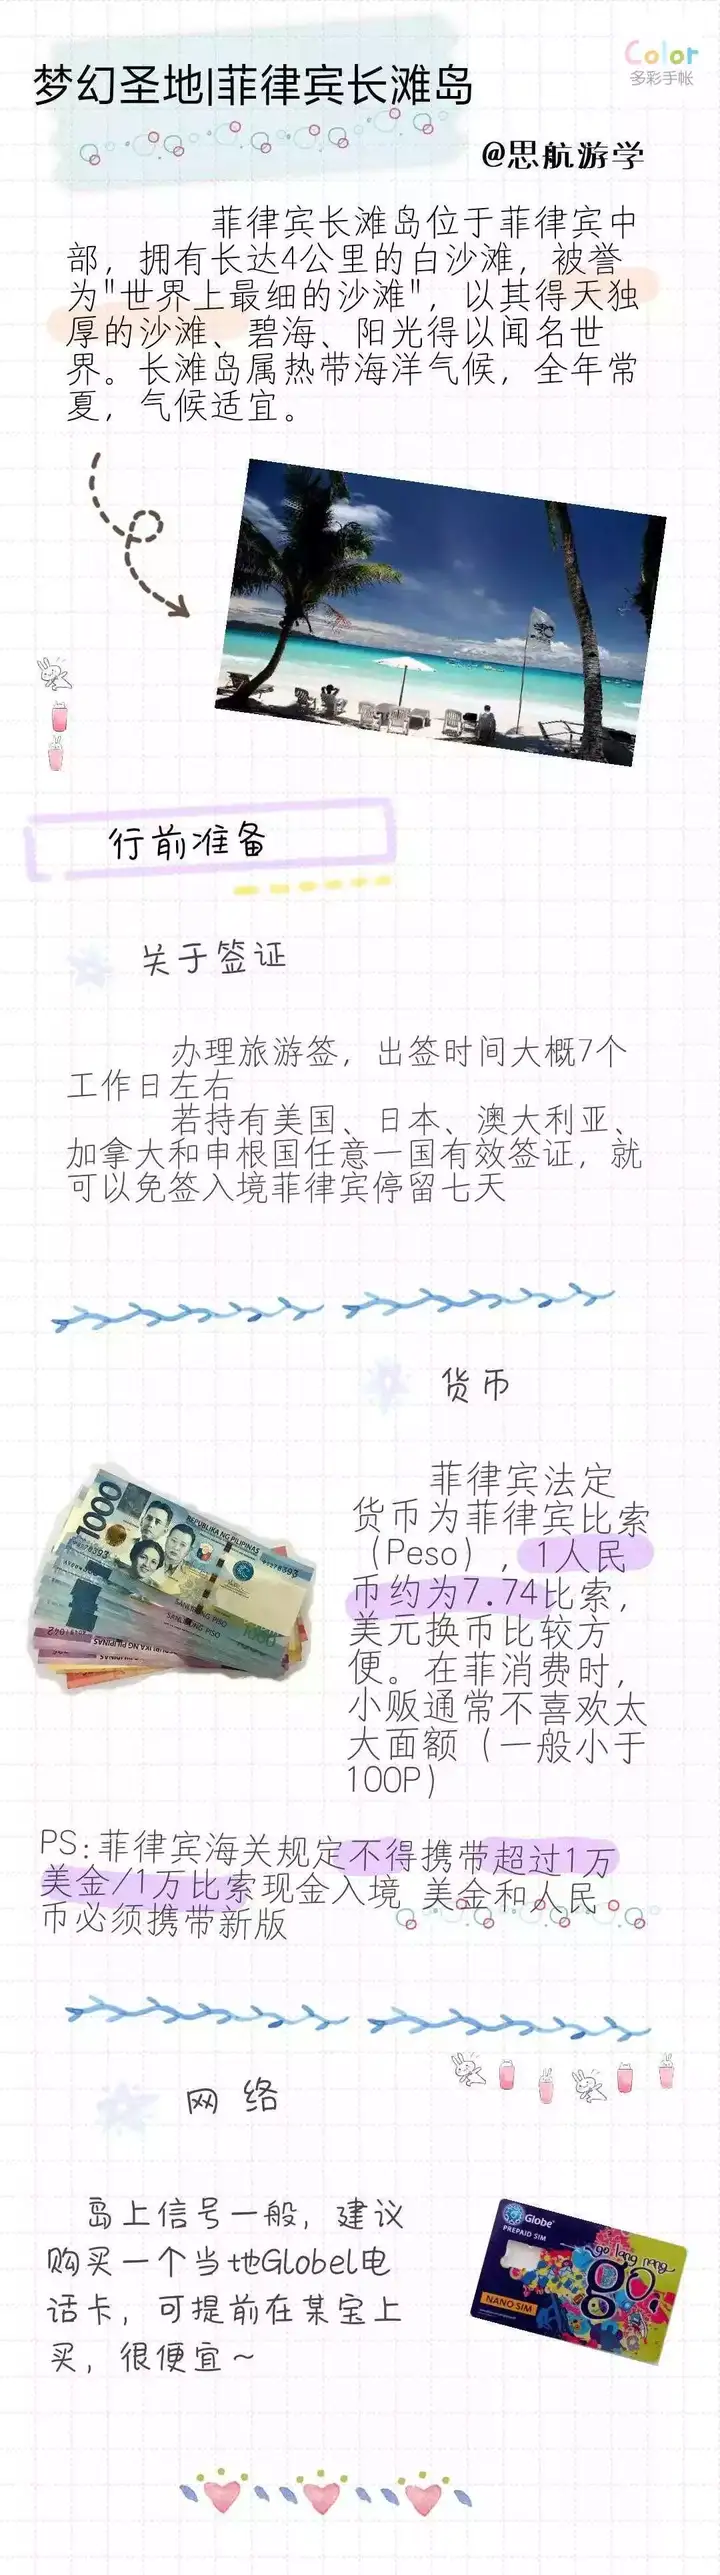 Color
多彩手帐
梦幻圣地|菲律宾长滩岛
@思航游学
菲律宾长滩岛位于菲律宾中
部，拥有长达4公里的白沙滩，被誉
为"世界上最细的沙滩"，以其得天独
厚的沙滩、碧海、阳光得以闻名世
界。长滩岛属热带海洋气候，全年常
夏，气候适宜。
行前准备
关于签证
办理旅游签，出签时间大概7个
工作日左右
若持有美国、日本、澳大利亚、
加拿大和申根国任意一国有效签证，就
可以免签入境菲律宾停留七天
货币
菲律宾法定
货币为菲律宾比索
（Peso），1人民
币约为7.74比索，
美元换币比较方
便。在菲消费时，
小贩通常不喜欢太
大面额（一般小于
100P）
1000
REPUBLIKA NG PILIPINAS
SANLIBONG PISO
SANLIBONG PISO
1000
PS:菲律宾海关规定不得携带超过1万
美金/1万比索现金入境 美金和人民
币必须携带新版
网络
岛上信号一般，建议
购买一个当地Globel电
话卡，可提前在某宝上
买，很便宜~
Globe
PREPAID SIM
go lang nang
go
NANO SIM